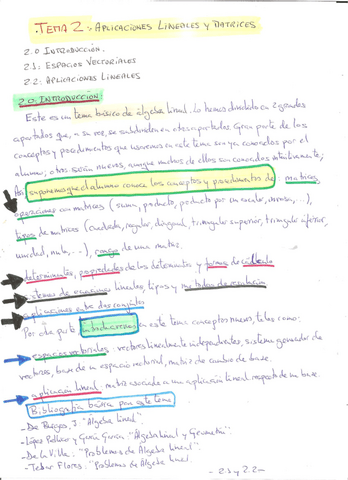 TEMA 2: APLICACIONES LINEALES Y MATRICES
2.0 INTRODUCCIÓN.
2.1: ESPACIOS VECTORIALES
2.2: APLICACIONES LINEALES
2.0: INTRODUCCIÓN:
Este es un tema básico de álgebra lineal. Lo hemos dividido en 2 grandes
apartados que, a su vez, se subdividen en otros apartados. Gran parte de los
conceptos y procedimientos que usaremos en este tema son ya conocidos por el
alumno, otros serán nuevos, aunque muchos de ellos son conocidos intuitivamente;
Así, suponemos que el alumno conoce los conceptos y procedimientos de: matrices,
operaciones con matrices (suma, producto, producto por un escalar, inversa, ...),
tipos de matrices (cuadrada, regular, diagonal, triangular superior, triangular inferior,
unidad, nula, ...), rango de una matriz.
determinantes, propiedades de los determinantes y formas de cálculo
sistemas de ecuaciones lineales, tipos y métodos de resolución
aplicaciones entre dos conjuntos
Por otra parte introduciremos en este tema conceptos nuevos, tales como:
espacios vectoriales: vectores linealmente independientes, sistema generador de
vectores, base de un espacio vectorial, matriz de cambio de base.
aplicación lineal: matriz asociada a una aplicación lineal respecto de una base.
Bibliografía básica para este tema
- De Burgos, J: "Álgebra lineal".
- López Pellicer y García García: "Álgebra lineal y Geometría"
- De la Villa: "Problemas de Álgebra lineal".
- Tebar Flores: "Problemas de Álgebra lineal.
- 2.1 y 2.2 -